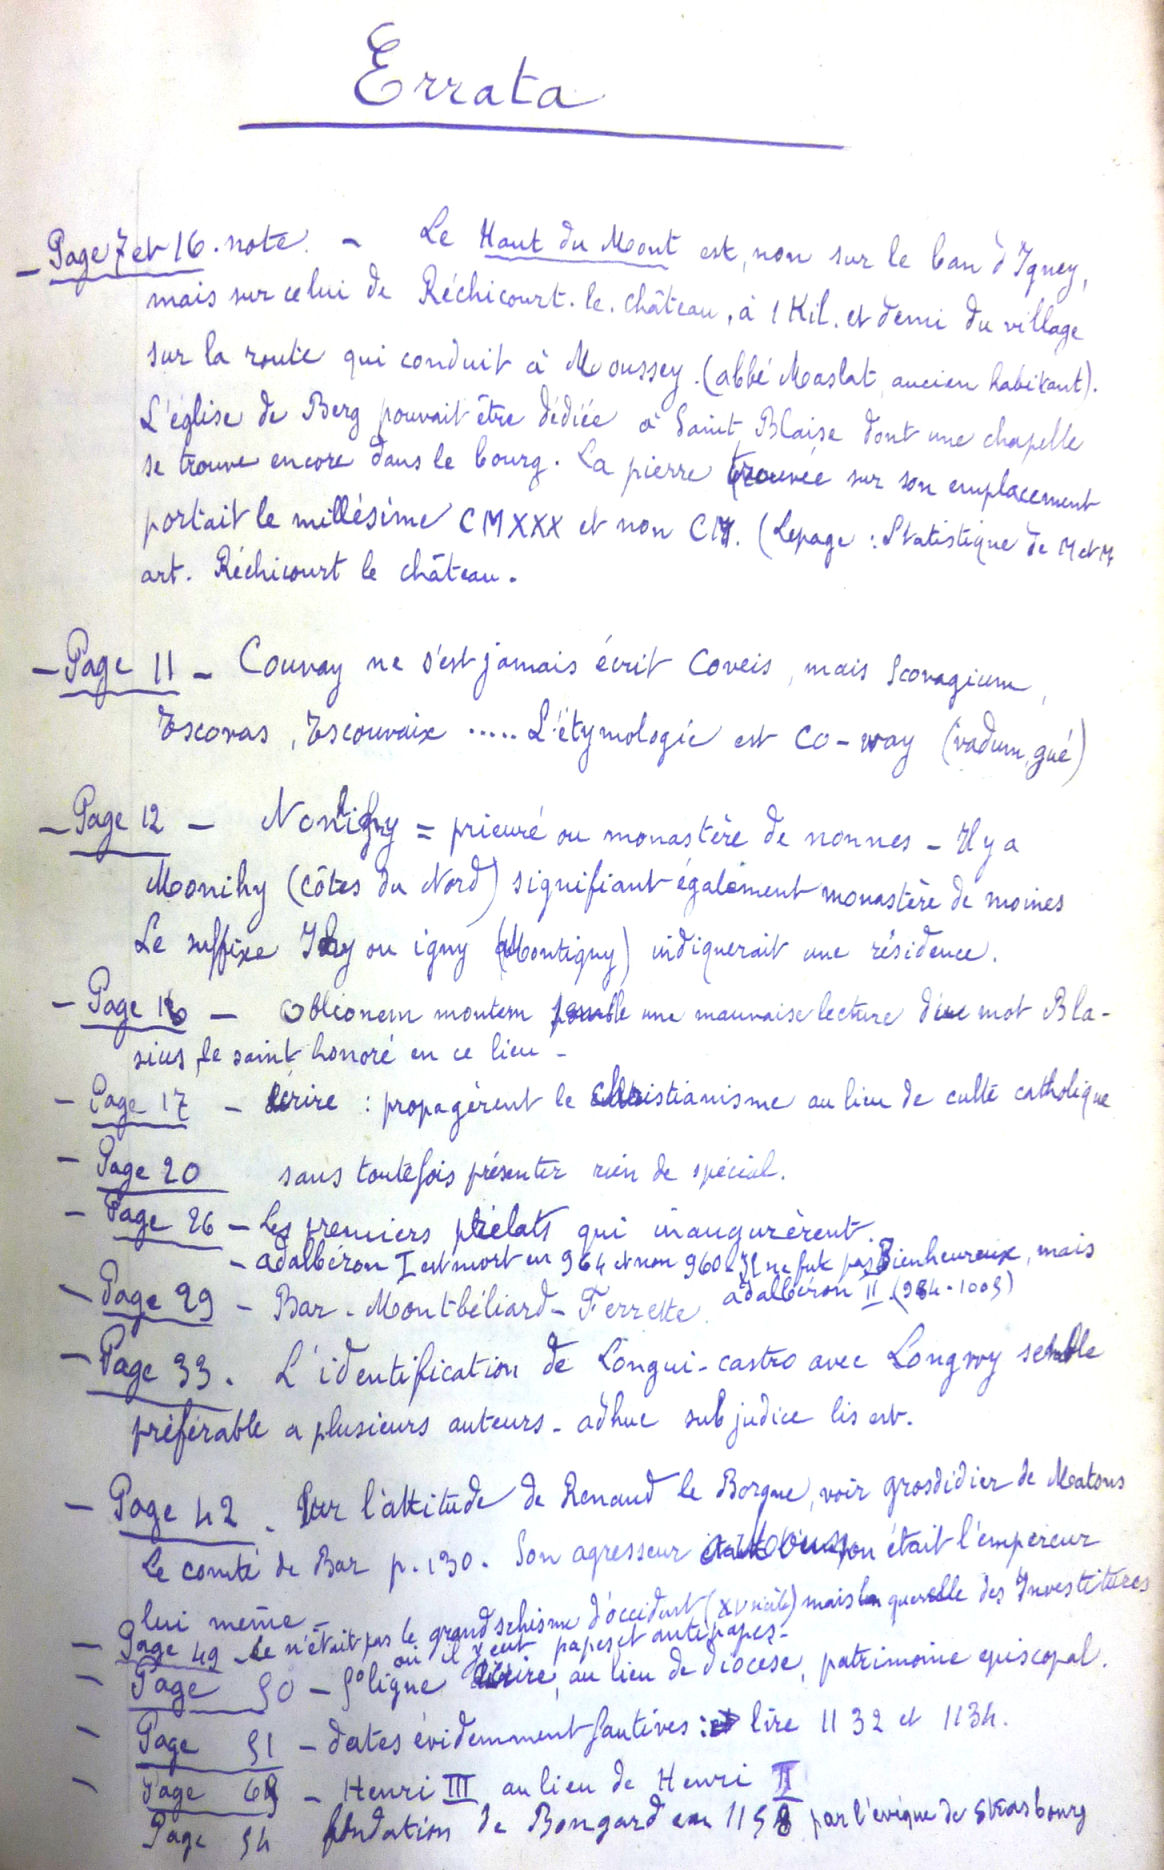 Errata
- Page 7 et 16. note. - Le Haut du Mont est, non sur le ban d'Igney,
mais sur celui de Réchicourt. le. château, à 1 Kil. et demi du village
sur la route qui conduit à Moussey. (abbé Maslat, ancien habitant).
L'église de Berg pouvait être dédiée à Saint Blaise dont une chapelle
se trouve encore dans le bourg. La pierre trouvée sur son emplacement
portait le millésime CMXXX et non CM. (Lepage : Statistique de M et M
art. Réchicourt le château.
- Page 11 - Couvay ne s'est jamais écrit Coveis, mais Scovagium,
Escovas, Escouvaix ..... L'étymologie est Co-way (vadum, gué)
- Page 12 - = prieuré ou monastère de nonnes - Il y a
Monihy (Côtes du Nord) signifiant également monastère de moines
Le suffixe ou igny (Montigny) indiquerait une résidence.
- Page 16 - Oblionem montem une mauvaise lecture mot Bla-
sius, le saint honoré en ce lieu -
- Page 17 - écrire : propagèrent le christianisme au lieu de culte catholique
- Page 20 sans toutefois présenter rien de spécial.
- Page 26 - Les premiers prélats qui inaugurèrent.
- adalbéron I est mort en 964 et non 960. Il ne fut pas Bienheureux, mais
adalbéron II (984-1005)
- Page 29 - Bar - Montbéliard - Ferrette
- Page 33. L'identification de Longui-castro avec Longwy semble
préférable a plusieurs auteurs - adhuc sub judice lis est.
- Page 42. Sur l'attitude de Renaud le Borgne, voir grosdidier de Matons
Le comté de Bar p. 130. Son agresseur était l'empereur
lui même -
- Page 49 - Ce n'était pas le grand schisme d'occident (XV siècle) mais la querelle des Investitures
où il y eut papes et antipapes -
- Page 50 - 5° ligne écrire, au lieu de diocèse, patrimoine episcopal.
- Page 51 - dates évidemment fautives : lire 1132 et 1134.
- Page 69 - Henri III au lieu de Henri II
Page 54 fondation de Bongard en 1158 par l'evêque de Strasbourg